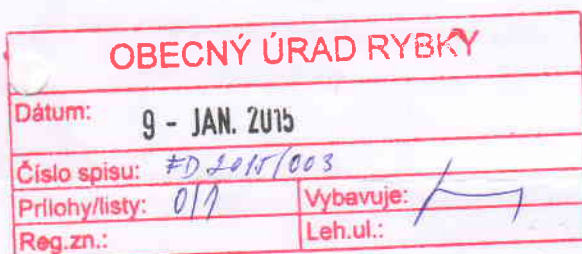 OBECNÝ ÚRAD RYBKY
Dátum: 9 - JAN. 2015
Číslo spisu: FD 2015/003
Prílohy/listy: 0/1 Vybavuje:
Reg.zn.: Leh.ul.: